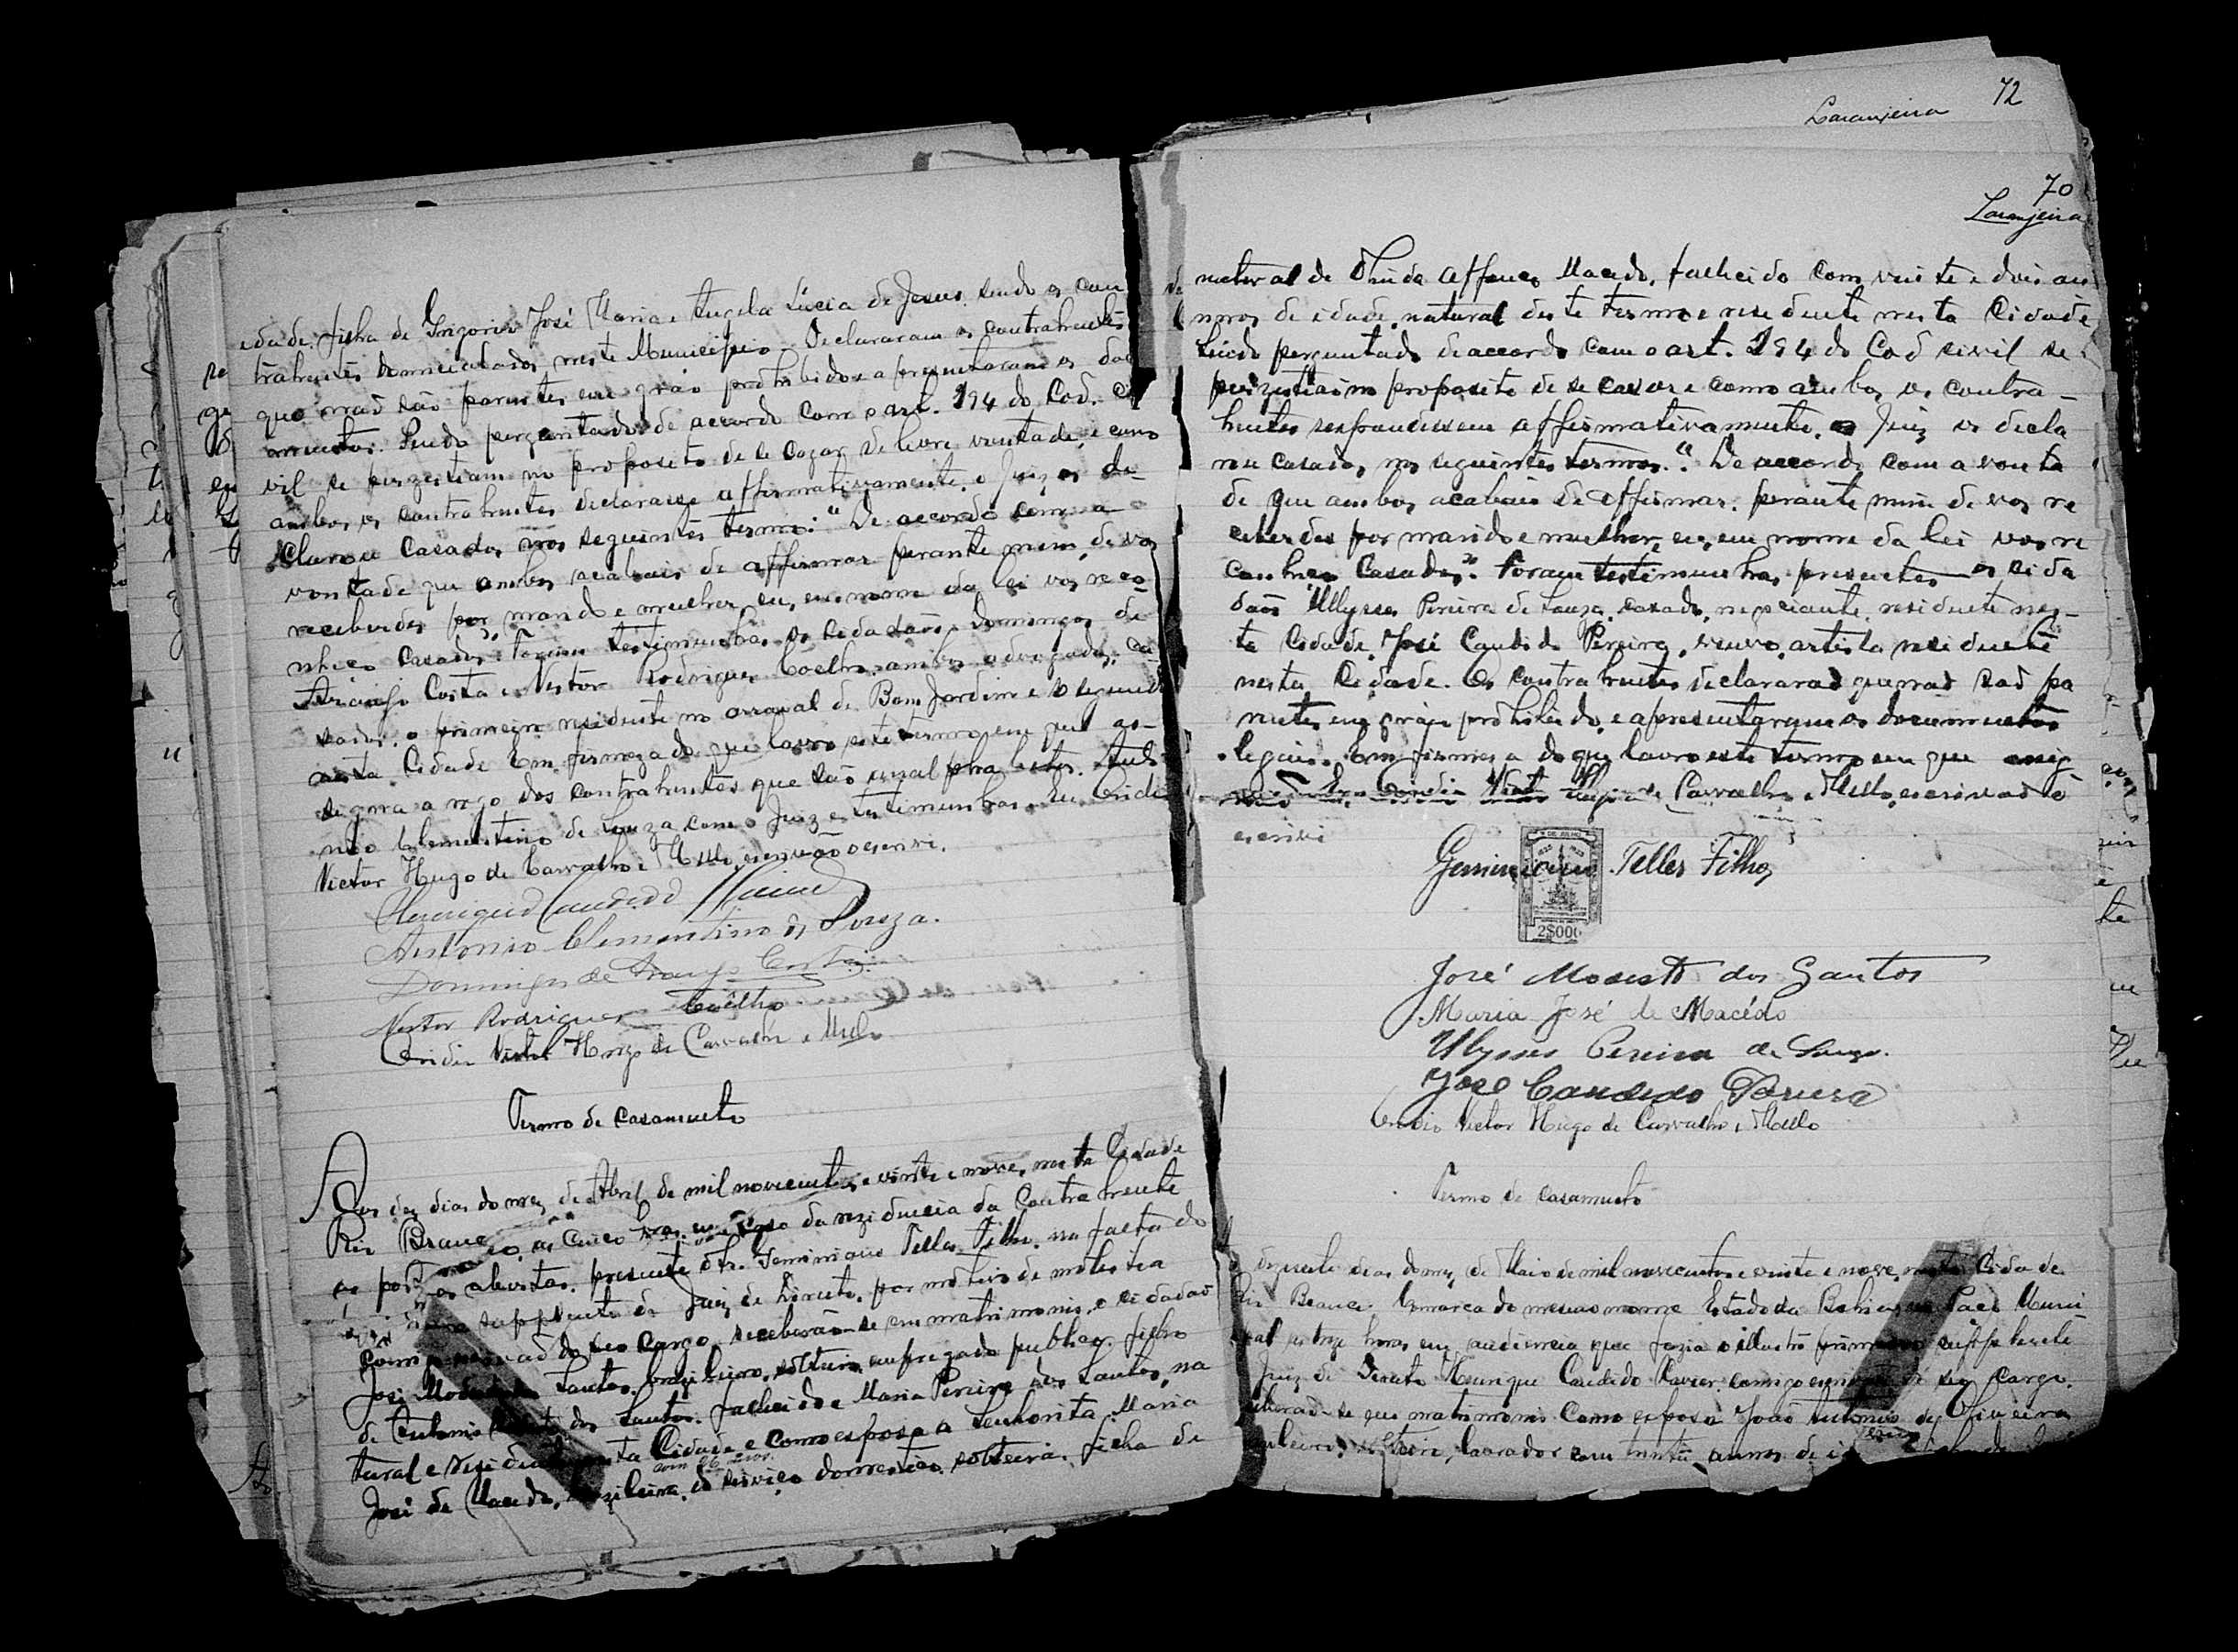 edade, filha de Gregorio José Maria e Angela Lucia de Jesus, sendo os con
trahentes domiciliados neste Municipio. Declararam os contrahentes
que não são parentes em gráo prohibido e apresentaram os do
cumentos. Sendo perguntados de accordo com o art. 194 do Cod. Ci
vil se perzestiam no proposito de se cazar de livre vontade, e como
ambos os contrahentes declarasse affirmativamente, o Juiz os de-
clarou casados nos seguintes termos: "De accordo com a
vontade que ambos acabais de affirmar perante mim, de vos
receberdes por marido e mulher, eu, em nome da lei vos reco
nheço casados". Foram testimunhas os cidadãos Domingos de
Araujo Costa e Nestor Rodrigues Coelho, ambos advogados, ca-
sados, o primeiro residente no arraial de Bom Jardim e o segundo
nesta Cidade. Em firmeza do que lavro este termo em que as-
signa a rogo dos contrahentes que são analphabetos, Anto
nio Clementino de Souza com o Juiz e testimunhas. Eu
Victor Hugo de Carvalho e Mello, escrivão o escrevi.
Henrique Candido
Antonio Clementino de Souza.
Domingos de Araujo Costa
Nestor Rodrigues Coêlho
Victor Hugo de Carvalho e Mello
Termo de casamento
Aos dez dias do mez de Abril de mil novecentos e vinte e nove, nesta Cidade
Rio Branco, as cinco horas, em casa da rezidencia da contrahente
as portas abertas, presente o Sr. Geminiano Telles Filho, na falta do
supplente do Juiz de Direito, por motivo de molestia
comigo escrivão do seo cargo, receberão-se em matrimonio, o cidadão
José Modesto dos Santos, brazileiro, solteiro, empregado publico, filho
de Antonio dos Santos, fallecido e Maria Pereira dos Santos, na
tural e residente nesta Cidade, e como esposa a senhorita Maria
com 26 annos
José de Macedo, brazileira, de serviço domestico, solteira, filha de
72
Laranjeira
70
Laranjeira
natural de Olinda Affonço Macedo, fallecido com vinte e dois an
nos de idade, natural deste termo e residente nesta Cidade
Sendo perguntado de accordo com o art. 194 do Cod civil se
perzestiam no proposito de se casar e como ambos os contra-
hentes respondessem affirmativamente, o Juiz os decla
rou casados, nos seguintes termos: "De accordo com a vonta
de que ambos acabais de affirmar, perante mim de vos re
ceberdes por marido e mulher, eu, em nome da lei vos re
conheço casados". Foram testimunhas presentes os cida
dãos Ulysses Pereira de Souza, casado, negociante, residente nes-
ta Cidade, José Candido Pereira, viuvo, artista residente
nesta Cidade. Os contrahentes declararão que não são pa
rentes em gráo prohibido, e apresentaram os documentos
legaes. Em firmeza do que lavro este termo em que assig
Carvalho e Mello, escrivão o
escrevi
Geminiano Telles Filho
2 DE JULHO
2$000
José Modesto dos Santos
Maria José de Macêdo
Ulysses Pereira de Souza.
José Candido Pereira
Victor Hugo de Carvalho e Mello
Termo de casamento
dias do mez de Maio de mil novecentos e vinte e nove, nesta Cidade
Rio Branco Comarca do mesmo nome Estado da Bahia, no Paço Muni
cipal, horas, em audiencia que fazia o illustre primeiro supplente
Juiz de Direito Henrique Candido Xavier, comigo escrivão de seo cargo,
receberão-se em matrimonio como esposo João Antonio de Oliveira
brazileiro, solteiro, lavrador com trinta annos de